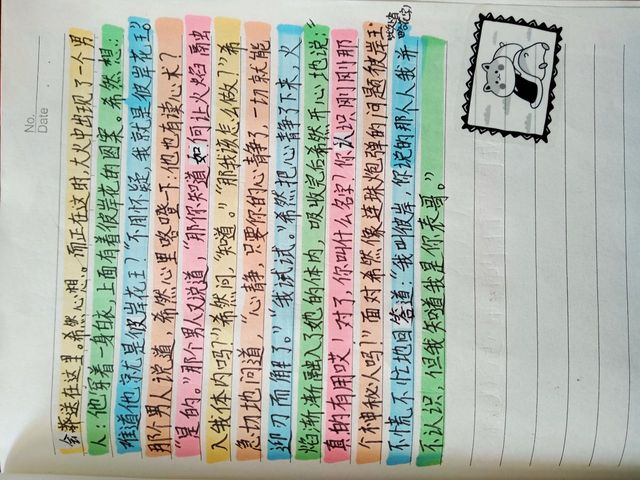 No.
Date
会葬送在这里。希然心想。而正在这时,大火中出现了一个男
人:他穿着一身白衣,上面有着彼岸花的图案。希然想:
难道他就是彼岸花王?“不用怀疑,我就是彼岸花王。”
那个男人说道,希然心里咯噔一下,他也有读心术?
“是的。”那个男人又说道,“那你知道如何让火焰融
入我体内吗?”希然问,“知道。”“那我该怎么做?”希
然急切地问道,“心静,只要你的心静了,一切就能
迎刃而解了。”“我试试。希然把心静了下来,火
焰渐渐融入了她的体内,吸收完后希然开心地说:“
真的有用哎,对了,你叫什么名字?你认识刚刚那
个神秘人吗!”面对希然像连珠炮弹的问题彼岸王
不慌不忙地回答道:“我叫彼岸,你说的那个人我并
不认识,但我知道我是你表哥。”